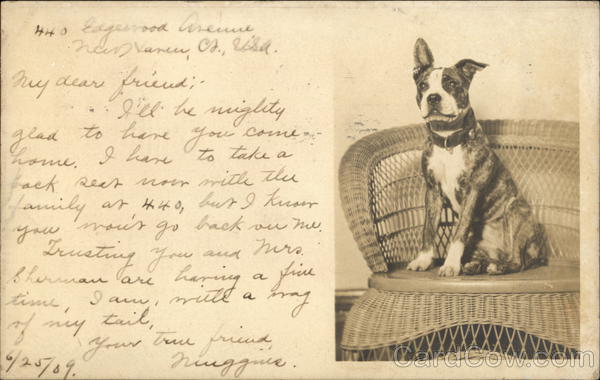 440 Edgewood Avenue
New Haven, Ct., USA.
My dear friend;
I'll be mighty
glad to have you come
home. I have to take a
back seat now with the
family at 440, but I know
you won't go back on me.
Trusting you and Mrs.
Sherman are having a fine
time, I am, with a wag
of my tail,
Your true friend,
Muggins.
6/25/09.
CardCow.com